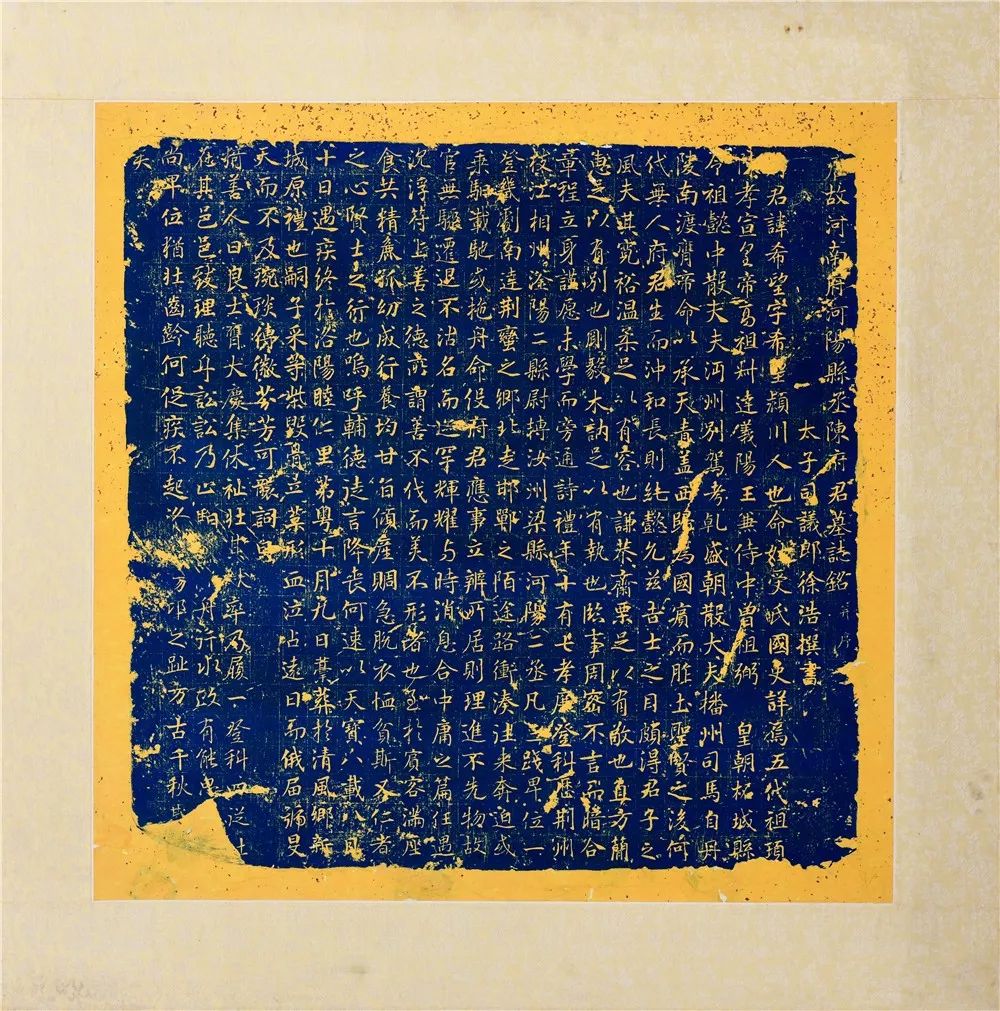 故河南府河陽縣丞陳府君墓誌銘并序
太子司議郎徐浩撰書
君諱希望字希望潁川人也命始受氏國史詳焉五代祖頊
孝宣皇帝高祖叔達儀陽王兼侍中曾祖弼皇朝柘城縣
令祖懿中散大夫沔州別駕考乹盛朝散大夫播州司馬自丹
陵南渡膺帝命以承天青蓋西歸為國賓而胙土聖賢之後何
代無人府君生而沖和長則純懿允兹吉士之目頗得君子之
風夫其寬裕溫柔足以有容也謙恭齋栗足以有敬也直方簡
惠足以有別也剛毅木訥足以有執也臨事周密不言而暗合
章程立身謹愿未學而旁通詩禮年十有七孝廉登科歷荆州
枝江相州滏陽二縣尉轉汝州梁縣河陽二丞凡三踐卑位一
登畿劇南達荆蠻之鄉北走邯鄲之陌途路衝湊往來奔迫或
乘馹載馳或拖舟命伇府君應事立辦所居則理進不先物故
官無驟遷退不沽名而迹罕輝耀与時消息合中庸之篇任遇
沉浮符上善之德所謂善不伐而美不形者也至於賓客滿座
食共精麁孤幼成行養均甘旨傾產賙急脫衣恤貧斯又仁者
之心賢士之行也嗚呼輔德徒言降喪何速以天寶八載八月
十日遇疾終於洛陽睦仁里第粵十月九日葬於清風鄉新
城原禮也嗣子采等柴毀骨立藁形血泣占遠日而俄届
天而不及琬琰傳徽芬芳可襲詞曰
猗善人曰良士胥大慶集休祉壯 率乃履一登科
在其邑邑政理聽舟訟訟乃止 有能
尚卑位猶壯齒齡何促疾不起 之趾万古千秋
矣